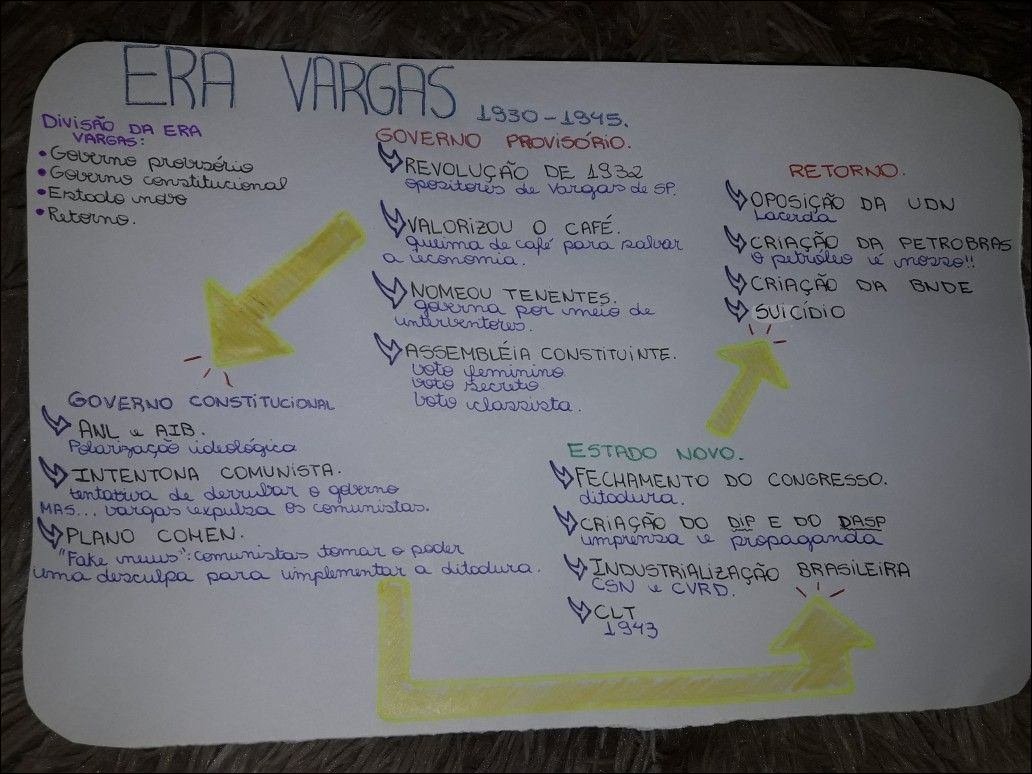 ERA VARGAS 1930-1945.
DIVISÃO DA ERA
VARGAS:
• Governo provisório
• Governo constitucional
• Estado novo
• Retorno.
GOVERNO PROVISÓRIO.
REVOLUÇÃO DE 1932
opositores de Vargas de SP.
VALORIZOU O CAFÉ.
queima de café para salvar
a economia.
NOMEOU TENENTES.
governa por meio de
interventores.
ASSEMBLÉIA CONSTITUINTE.
voto feminino
voto secreto
voto classista.
GOVERNO CONSTITUCIONAL
ANL e AIB.
Polarização ideológica
INTENTONA COMUNISTA.
tentativa de derrubar o governo
MAS... vargas expulsa os comunistas.
PLANO COHEN.
"Fake news": comunistas tomar o poder
uma desculpa para implementar a ditadura.
ESTADO NOVO.
FECHAMENTO DO CONGRESSO.
ditadura.
CRIAÇÃO DO DIP E DO DASP
imprensa e propaganda
INDUSTRIALIZAÇÃO BRASILEIRA
CSN e CVRD.
CLT
1943
RETORNO.
OPOSIÇÃO DA UDN
Lacerda
CRIAÇÃO DA PETROBRAS
o petróleo é nosso!!
CRIAÇÃO DA BNDE
SUICÍDIO